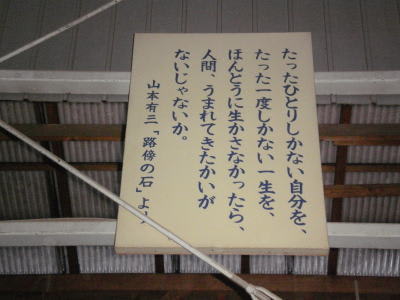 たったひとりしかない自分を、
たった一度しかない一生を、
ほんとうに生かさなかったら、
人間、うまれてきたかいが
ないじゃないか。
山本有三「路傍の石」より